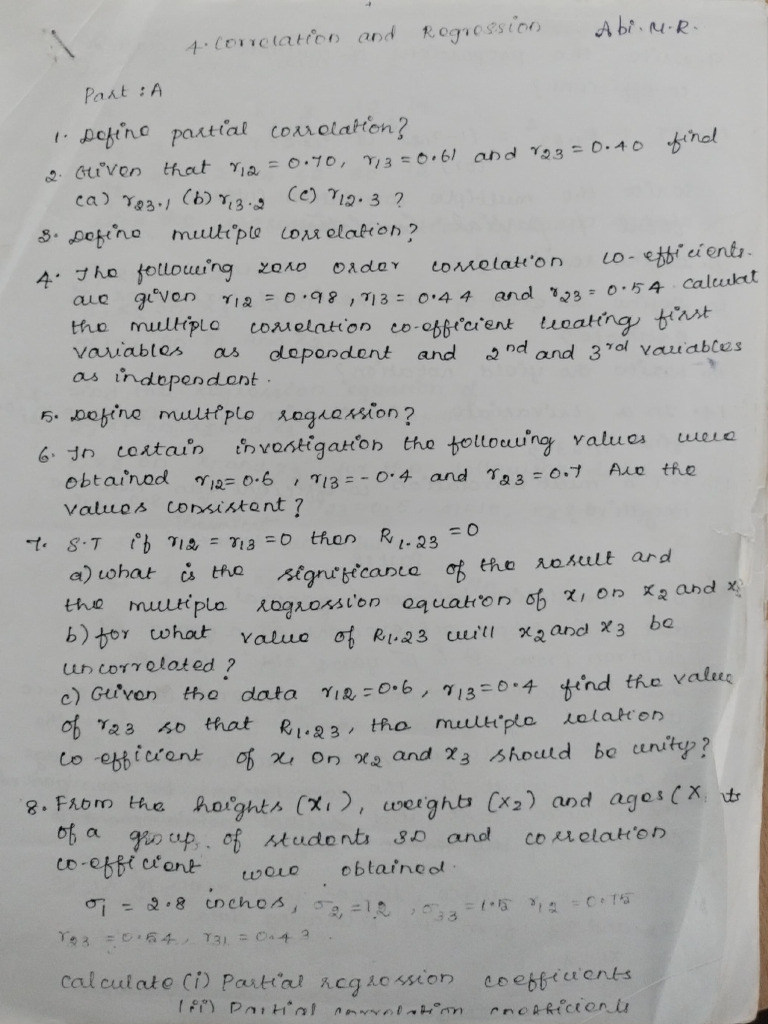 4. Correlation and Regression Abi.M.R.
Part : A
1. Define partial correlation?
2. Given that r12 = 0.70, r13 = 0.61 and r23 = 0.40 find
(a) r23.1 (b) r13.2 (c) r12.3 ?
3. Define multiple correlation?
4. The following zero order correlation co-efficients.
are given r12 = 0.98, r13 = 0.44 and r23 = 0.54. calculat
the multiple correlation co-efficient treating first
variables as dependent and 2nd and 3rd variables
as independent.
5. Define multiple regression?
6. In certain investigation the following values were
obtained r12= 0.6 , r13 = -0.4 and r23 = 0.7 Are the
values consistent ?
7. S.T if r12 = r13 = 0 then R1.23 = 0
a) what is the significance of the result and
the multiple regression equation of x1 on x2 and x3
b) for what value of R1.23 will x2 and x3 be
uncorrelated ?
c) Given the data r12 = 0.6, r13 = 0.4 find the value
of r23 so that R1.23, the multiple relation
co-efficient of x1 on x2 and x3 should be unity?
8. From the heights (x1), weights (x2) and ages (x
of a group of students SD and correlation
co-efficient were obtained.
σ1 = 2.8 inches, σ2 = 12 , σ33 = 1.5 r12 = 0.75
r23 = 0.54, r31 = 0.43.
calculate (i) Partial regression coefficients
(ii) Partial correlation coefficients